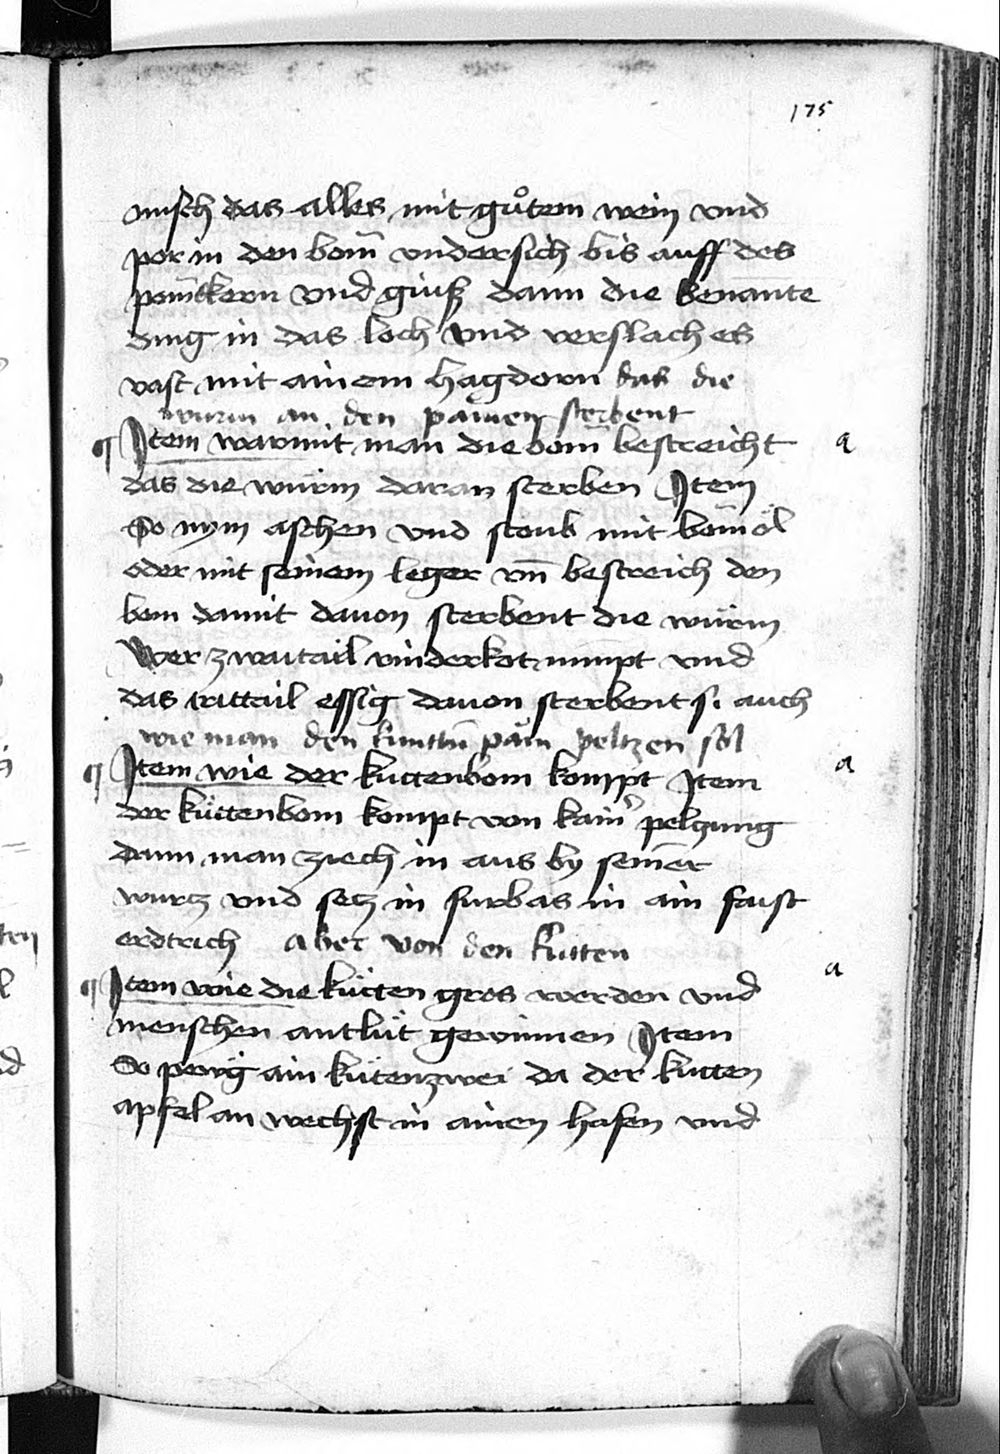 175
misch das alles mit gůtem wein vnd
por in den bom̄ vndersich bis auff des
pom̄kern vnd giuß dann die benante
ding in das loch vnd verslach es
vast mit ainem hagdorn das die
würm an den pämen sterbent
¶ Item warmit man die bom̄ bestreicht a
das die würm daran sterben Item
So nym aschen vnd stoub mit bömöl
oder mit seinem leger vn̄ bestreich den
bom damit dauon sterbent die würm
Wer zwaitail rinderkot nimpt vnd
das trittail essig dauon sterbent si auch
wie man den kuttin̄ päm peltzen sol
¶ Item wie der kuttenbom kompt Item a
der küttenbom kompt von kain̾ pelzung
dann man ziech in aus by sein̄er
wurtz vnd setz in furbas in ain faist
erdtrich aber von den kütten
¶ Item wie die kütten gros werden vnd a
menschen antlüt gewinnen Item
So pewg ain kütenzwei da der kutten
apfel an wechst in ainen hafen vnd